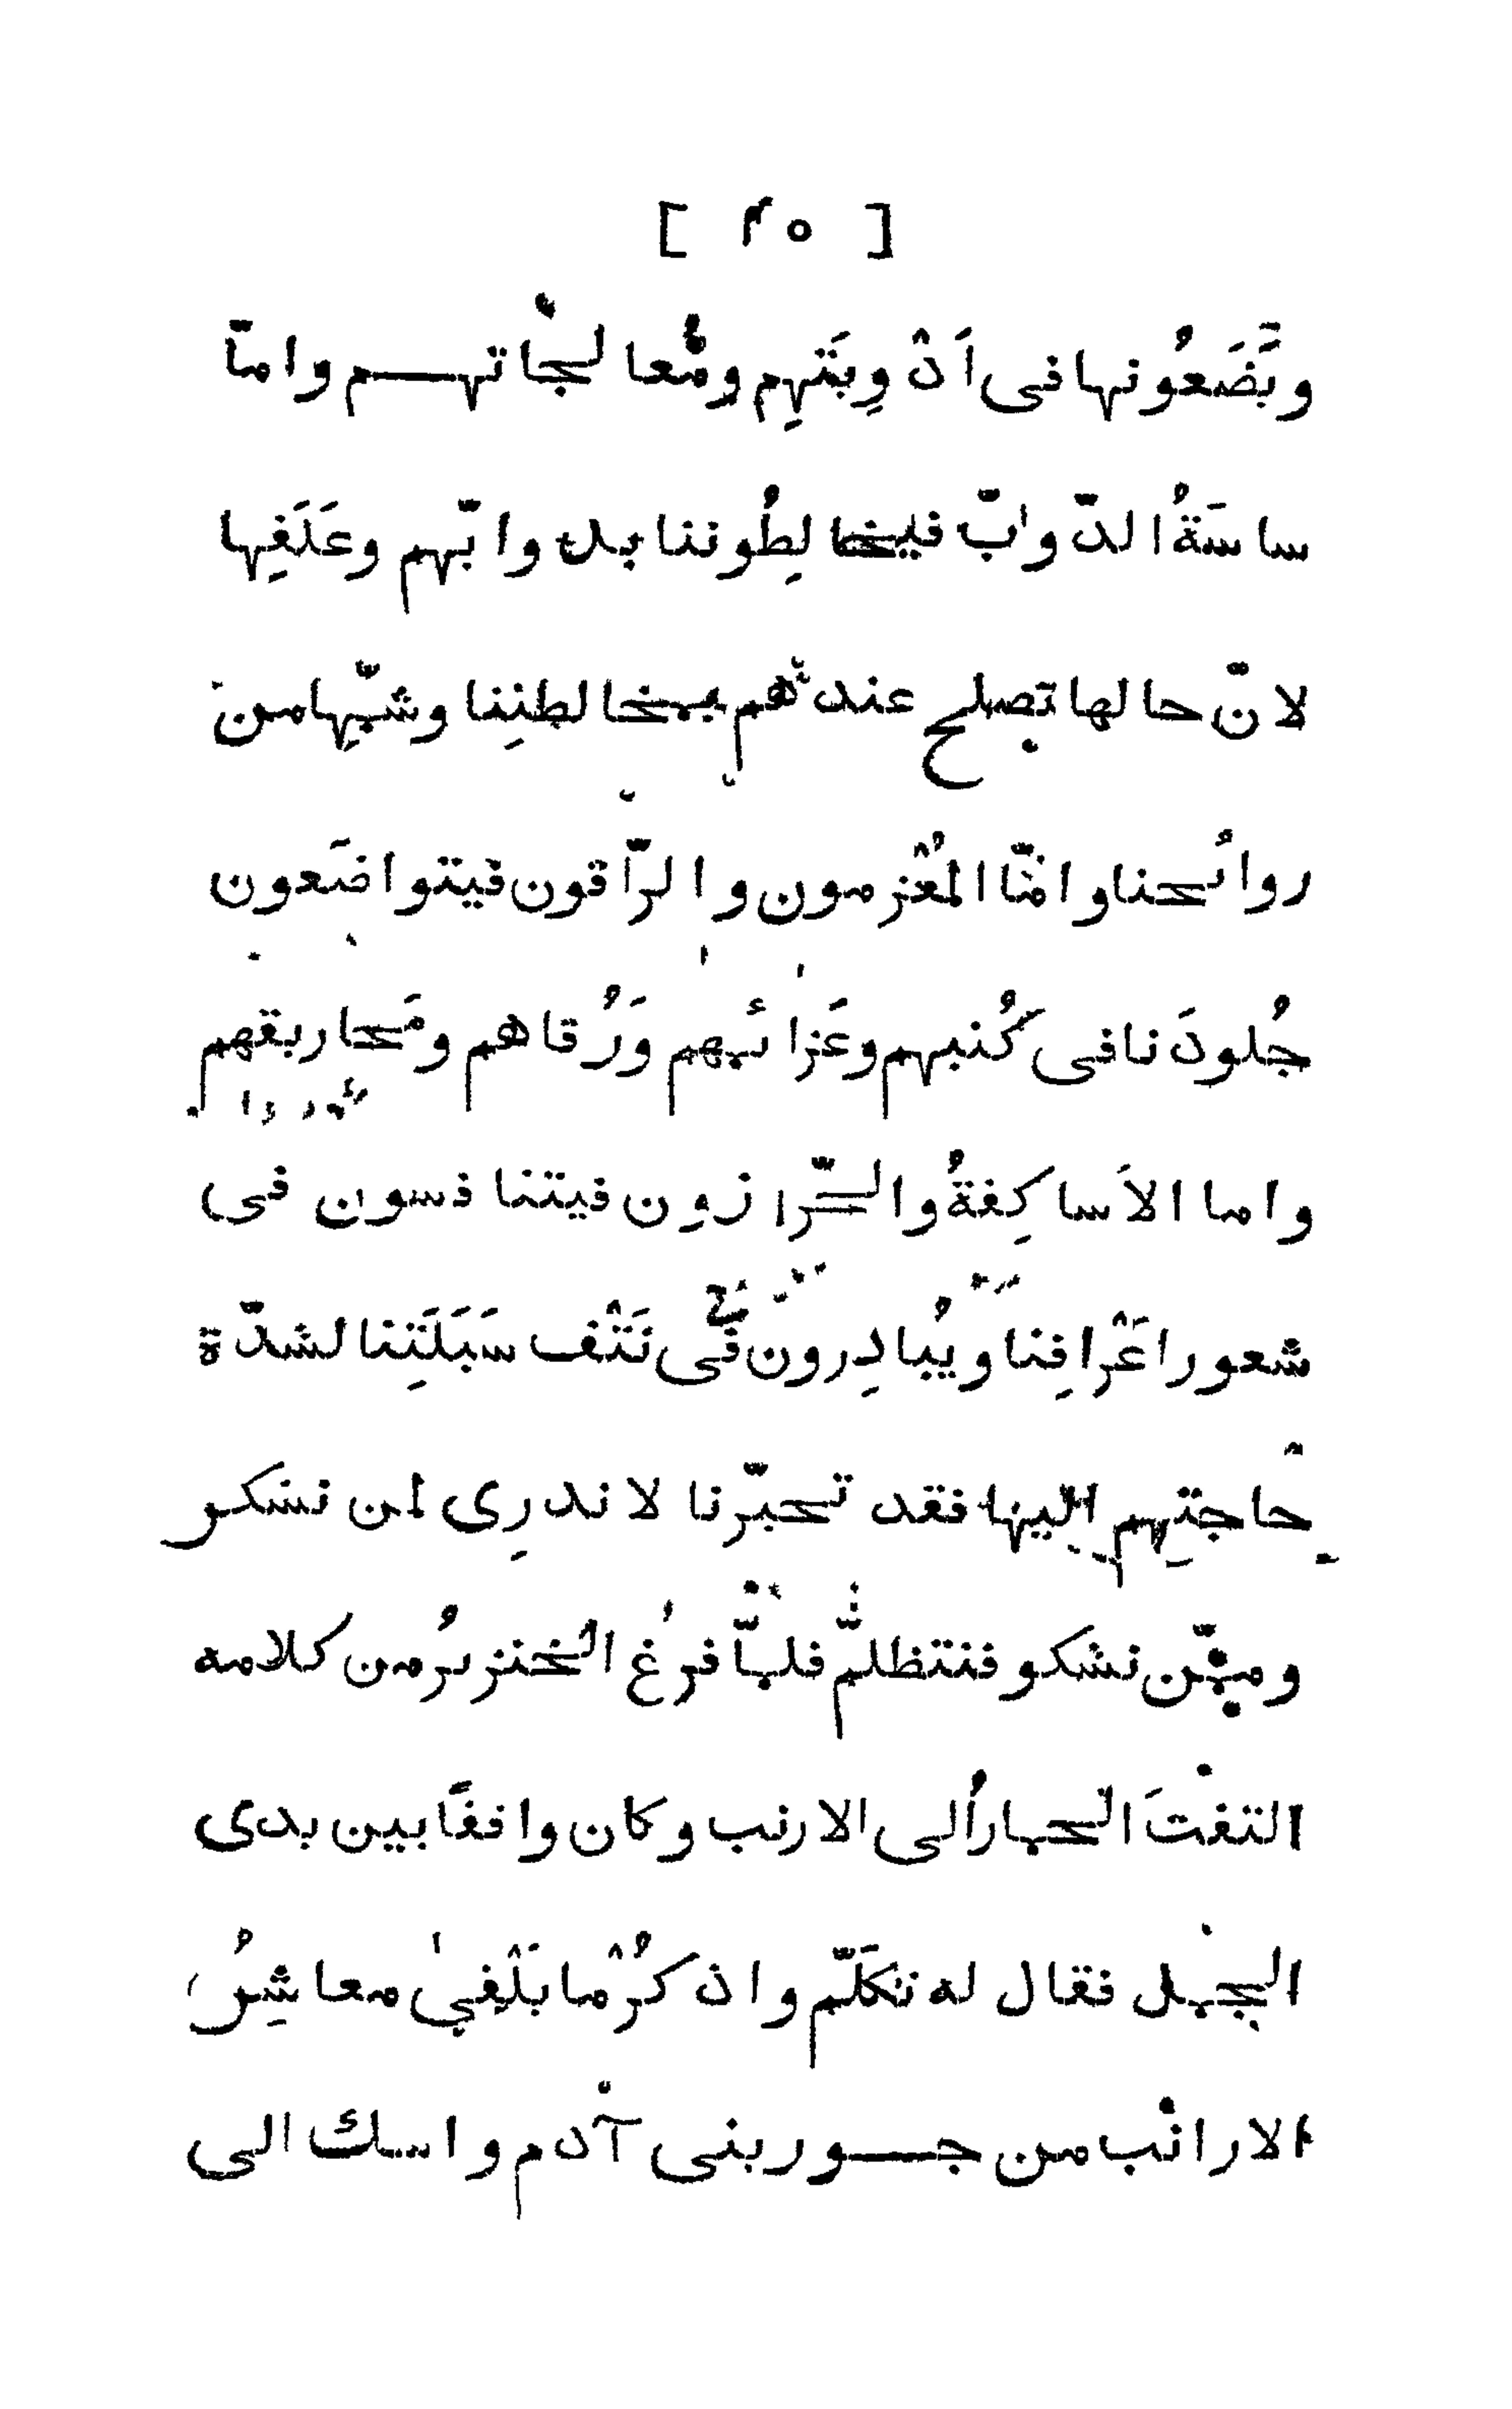 [ ٢٥ ]
ويَضَعُونها فى اَدْوِيَتهِم ومُعالجاتهم وامّا
ساسَةُ الدّوابّ فيخالِطُوننا بدوابّهم وعَلَفِها
لانّ حالها تصلح عندهم بمخالطتِنا وشمِّها من
روائحنا وامّا المُعْزمون والرّاقون فيتواضَعون
جُلودَنا فى كُتبهم وعَزائمهم وَرُقاهم ومَخاريقهم
واما الاَساكِفةُ والخرّازون فيتنافسون فى
شعور اَعْرافِنا ويُبادِرون فى نَتْف سَبَلَتِنا لشدّة
حاجتِهم اليها فقد تحيّرنا لا ندرِى لمن نشكر
وممّن نشكو فنتظلّم فلمّا فرغ الخنزيرُ من كلامه
التفتَ الحمارُ الى الارنب وكان واقفًا بين يدى
الجمل فقال له تكَلّم واذكُرْ ما بَلْقىٰ معاشِرُ
الارانب من جور بنى آدم واسك الى